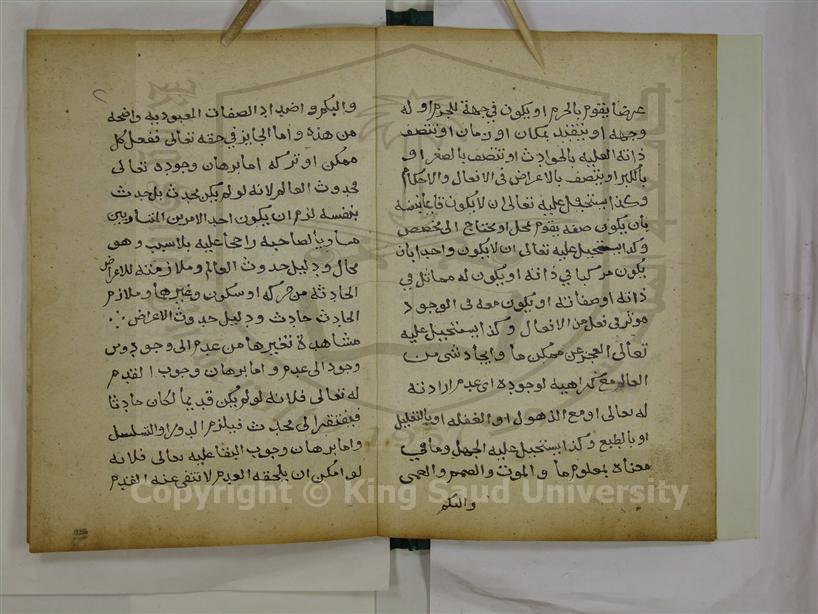 عرضا يقوم بالجرم او يكون في جهة للجرم او له
وجهه او يتقيد بمكان او زمان او تتصف
ذاته العليه بالحوادث او تتصف بالصغر او
بالكبر او يتصف بالاعراض في الافعال والاحكام
وكذا يستحيل عليه تعالى ان لا يكون قايما بنفسه
بان يكون صفه يقوم بمحل او يحتاج الى مخصص
وكذا يستحيل عليه تعالى ان لا يكون واحدا بان
يكون مركبا في ذاته او يكون له مماثل في
ذاته او صفاته او يكون معه في الوجود
موثر في فعل من الافعال وكذا يستحيل عليه
تعالى العجز عن ممكن ما وايجاد شى من
العالم مع كراهيه لوجوده اى عدم ارادته
له تعالى او مع الذهول او الغفله او بالتعليل
او بالطبع وكذا يستحيل عليه الجهل وما في
معناه بمعلوم ما والموت والصمم والعمى
والبكم
والبكم واضداد الصفات المعنويه واضحه
من هذه واما الجايز في حقه تعالى ففعل كل
ممكن او تركه اما برهان وجوده تعالى
فحدوث العالم لانه لو لم يكن محدث بل حدث
بنفسه لزم ان يكون احد الامرين المتساويين
مساويا لصاحبه راجحا عليه بلا سبب وهو
محال ودليل حدوث العالم وملازمته للاعراض
الحادثه من حركه او سكون وغيرها وملازم
الحادث حادث ودليل حدوث الاعراض
مشاهدة تغيرها من عدم الى وجود ومن
وجود الى عدم واما برهان وجوب القدم
له تعالى فلانه لو لم يكن قديما لكان حادثا
فيفتقر الى محدث فيلزم الدور او التسلسل
واما برهان وجوب البقا عليه تعالى فلانه
لو امكن ان يلحقه العدم لانتفى عنه القدم
Copyright © King Saud University